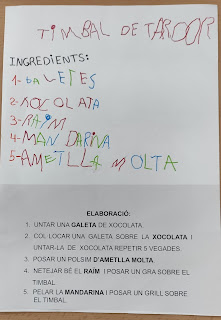 TIMBAL DE TARDOR
INGREDIENTS:
1-GALETES
2-XOCOLATA
3-RAÏM
4-MANDARINA
5-AMETLLA MOLTA
ELABORACIÓ:
1. UNTAR UNA GALETA DE XOCOLATA.
2. COL·LOCAR UNA GALETA SOBRE LA XOCOLATA I
UNTAR-LA DE XOCOLATA REPETIR 5 VEGADES.
3. POSAR UN POLSIM D'AMETLLA MOLTA.
4. NETEJAR BÉ EL RAÏM I POSAR UN GRA SOBRE EL
TIMBAL.
5. PELAR LA MANDARINA I POSAR UN GRILL SOBRE
EL TIMBAL.